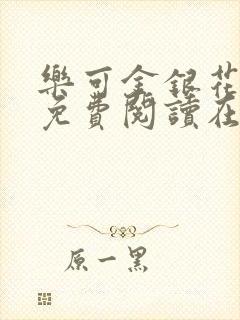 樂可金銀花
免費閱讀在
原一黑